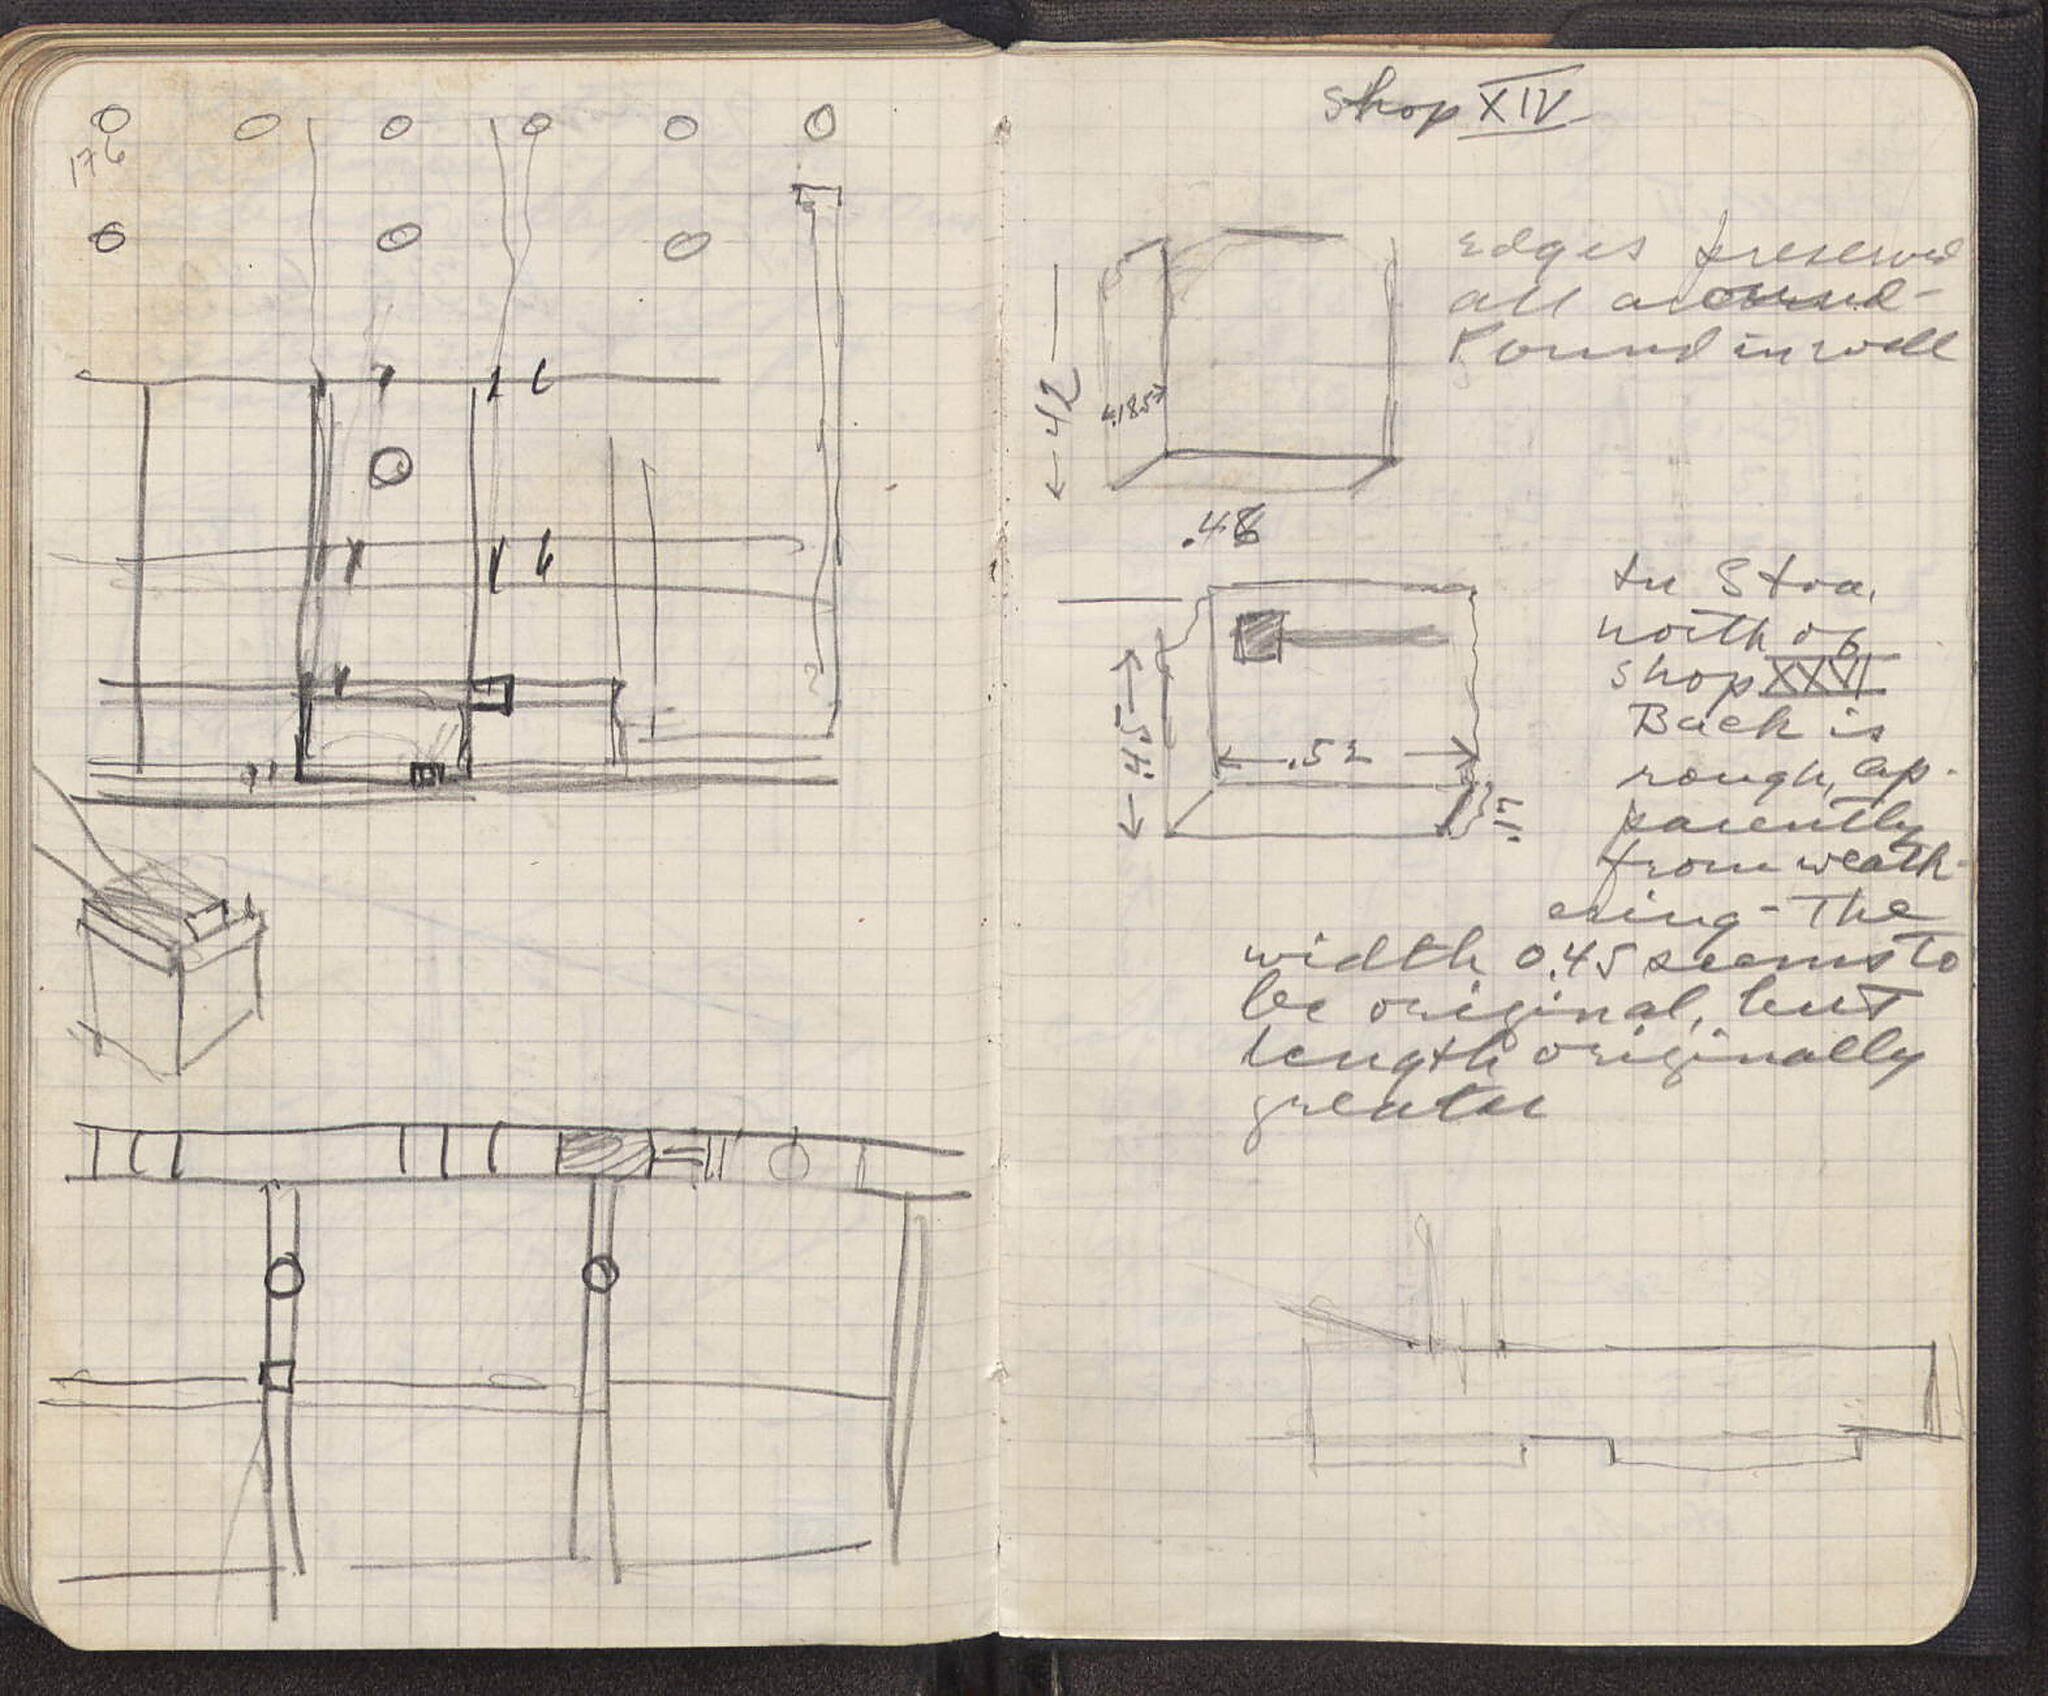 176
Shop XIV
Edges preserved
all around-
Found in well
42
.185
.48
In Stoa,
north of
shop XXVII
Back is
rough, ap-
parently
from weath-
ering - The
width 0.45 seems to
be original, but
length originally
greater
.45
.52